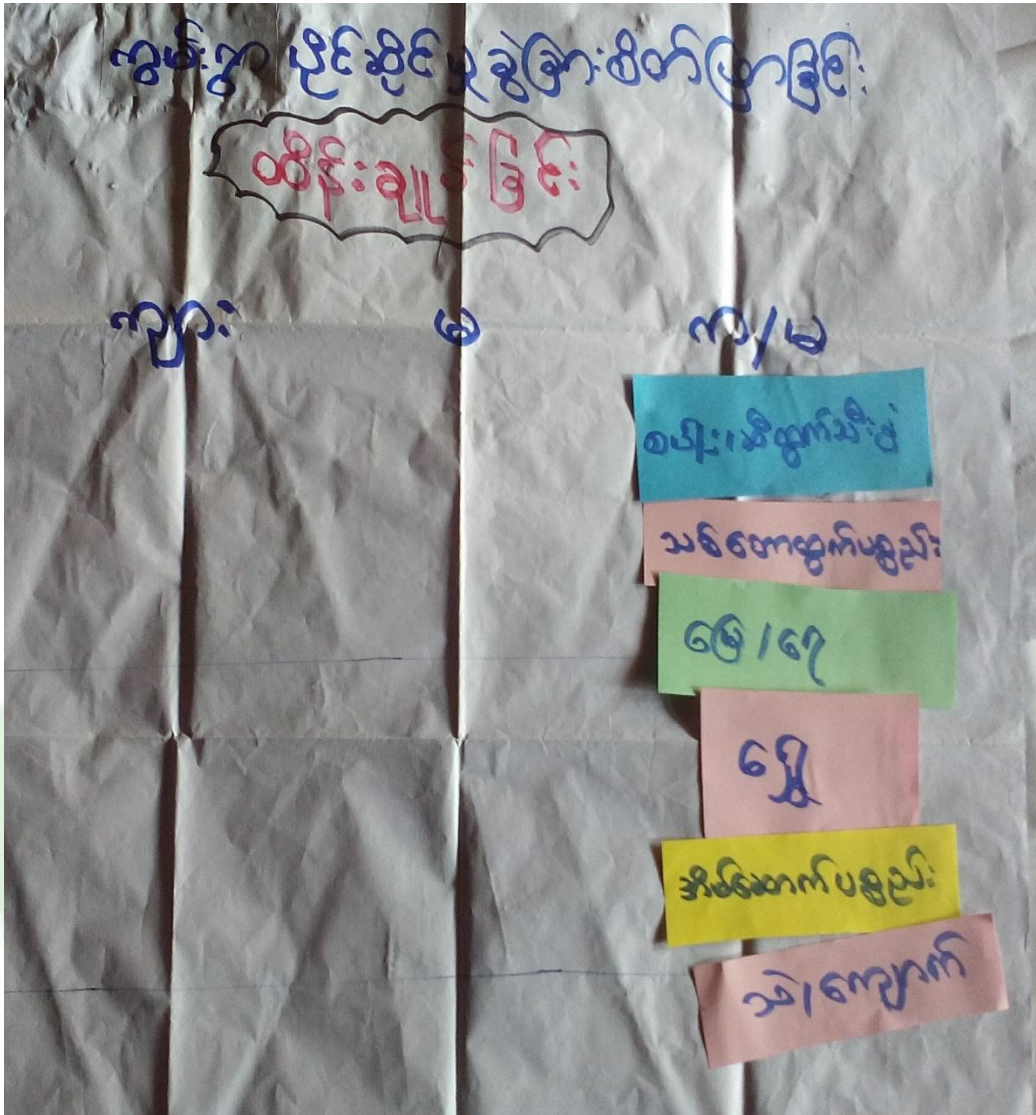 ကွမ်းရွာ ပိုင်ဆိုင်မှု ခွဲခြားစိတ်ဖြာခြင်း
ထိန်းချုပ်ခြင်း
ကျား မ ကျာ/မ
စပါး၊ဆီထွက်သီးနှံ
သစ်တောထွက်ပစ္စည်း
မြေ/ရေ
ရွှေ
အိမ်ဆောက်ပစ္စည်း
သဲ/ကျောက်